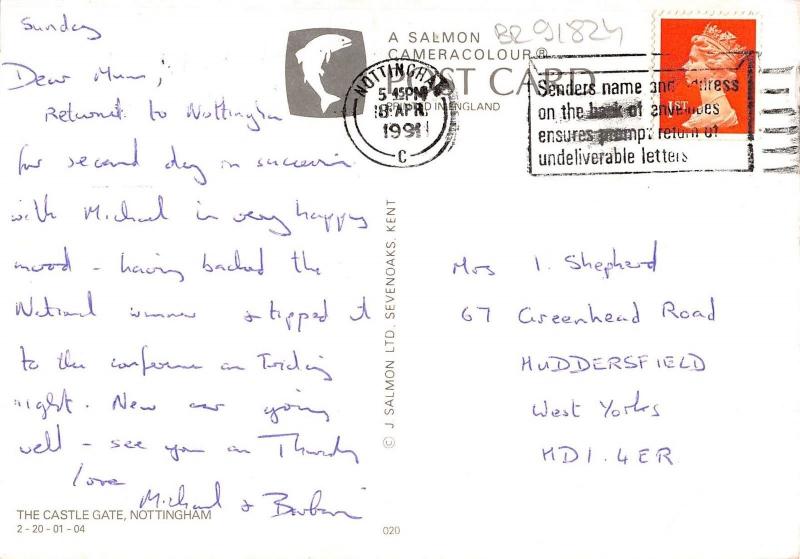 Sunday
Dear Mum,
Returned to Nottingham
for second day in succession
with Michael in very happy
mood - having backed the
National winner & tipped it
to the conference on Friday
night. New car going
well - see you on Thursday
love
Michael & Barbara
THE CASTLE GATE, NOTTINGHAM
2-20-01-04
A SALMON
CAMERACOLOUR®
POST CARD
PRINTED IN ENGLAND
BR 91824
NOTTINGHAM
5-45PM
APR
1991
C
Senders name and address
on the back of envelopes
ensures prompt return of
undeliverable letters
1ST
© J. SALMON LTD, SEVENOAKS, KENT
020
Mrs I. Shepherd
67 Greenhead Road
HUDDERSFIELD
West Yorks
HD1.4ER